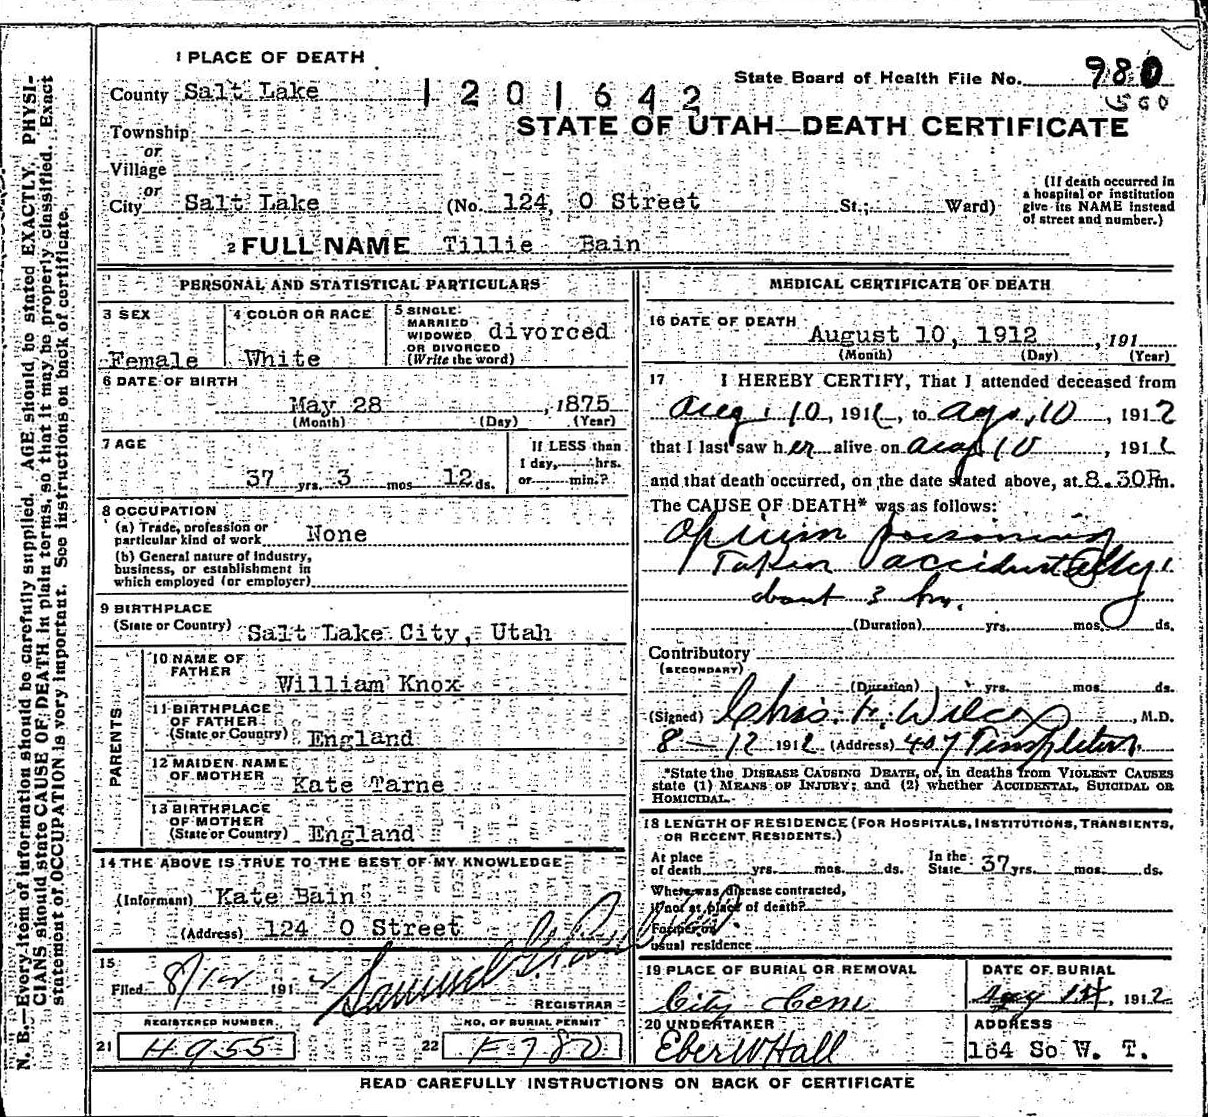 1 PLACE OF DEATH
State Board of Health File No. 980
County Salt Lake
1201642
560
STATE OF UTAH—DEATH CERTIFICATE
Township
or
Village
or
City Salt Lake (No. 124, O Street St.; Ward)
(If death occurred in a hospital or institution give its NAME instead of street and number.)
2 FULL NAME Tillie Bain
PERSONAL AND STATISTICAL PARTICULARS
3 SEX Female
4 COLOR OR RACE White
5 SINGLE MARRIED WIDOWED OR DIVORCED (Write the word) divorced
6 DATE OF BIRTH
May 28, 1875
(Month) (Day) (Year)
7 AGE
37 yrs. 3 mos 12 ds.
If LESS than
1 day, hrs.
or min.?
8 OCCUPATION
(a) Trade, profession or particular kind of work None
(b) General nature of industry, business, or establishment in which employed (or employer)
9 BIRTHPLACE
(State or Country) Salt Lake City, Utah
PARENTS
10 NAME OF FATHER William Knox
11 BIRTHPLACE OF FATHER (State or Country) England
12 MAIDEN NAME OF MOTHER Kate Tarne
13 BIRTHPLACE OF MOTHER (State or Country) England
14 THE ABOVE IS TRUE TO THE BEST OF MY KNOWLEDGE
(Informant) Kate Bain
(Address) 124 O Street
15
Filed 8/12 191 2 Samuel G.
REGISTRAR
REGISTERED NUMBER
21 H 955
NO. OF BURIAL PERMIT
22 F 780
MEDICAL CERTIFICATE OF DEATH
16 DATE OF DEATH
August 10, 1912, 191
(Month) (Day) (Year)
17 I HEREBY CERTIFY, That I attended deceased from
Aug. 10, 1912, to Ag. 10, 1912
that I last saw her alive on Aug 10, 1912
and that death occurred, on the date stated above, at 8.30 Pm.
The CAUSE OF DEATH* was as follows:
Opium poisoning
Taken accidentally.
about 3 hrs.
(Duration) yrs. mos. ds.
Contributory
(SECONDARY)
(Duration) yrs. mos. ds.
(Signed) Chas. F. Wilcox, M.D.
8—12 1912 (Address) 407 Templeton.
*State the DISEASE CAUSING DEATH, or, in deaths from VIOLENT CAUSES
state (1) MEANS OF INJURY; and (2) whether ACCIDENTAL, SUICIDAL OR
HOMICIDAL.
18 LENGTH OF RESIDENCE (FOR HOSPITALS, INSTITUTIONS, TRANSIENTS,
OR RECENT RESIDENTS.)
At place of death yrs. mos. ds. In the State 37 yrs. mos. ds.
Where was disease contracted,
if not at place of death?
Former or
usual residence
19 PLACE OF BURIAL OR REMOVAL
City Cem
DATE OF BURIAL
1912
20 UNDERTAKER
Eber W Hall
ADDRESS
164 So W. T.
READ CAREFULLY INSTRUCTIONS ON BACK OF CERTIFICATE
N. B.—Every item of information should be carefully supplied. AGE should be stated EXACTLY. PHYSI-
CIANS should state CAUSE OF DEATH in plain terms, so that it may be properly classified. Exact
statement of OCCUPATION is very important. See instructions on back of certificate.